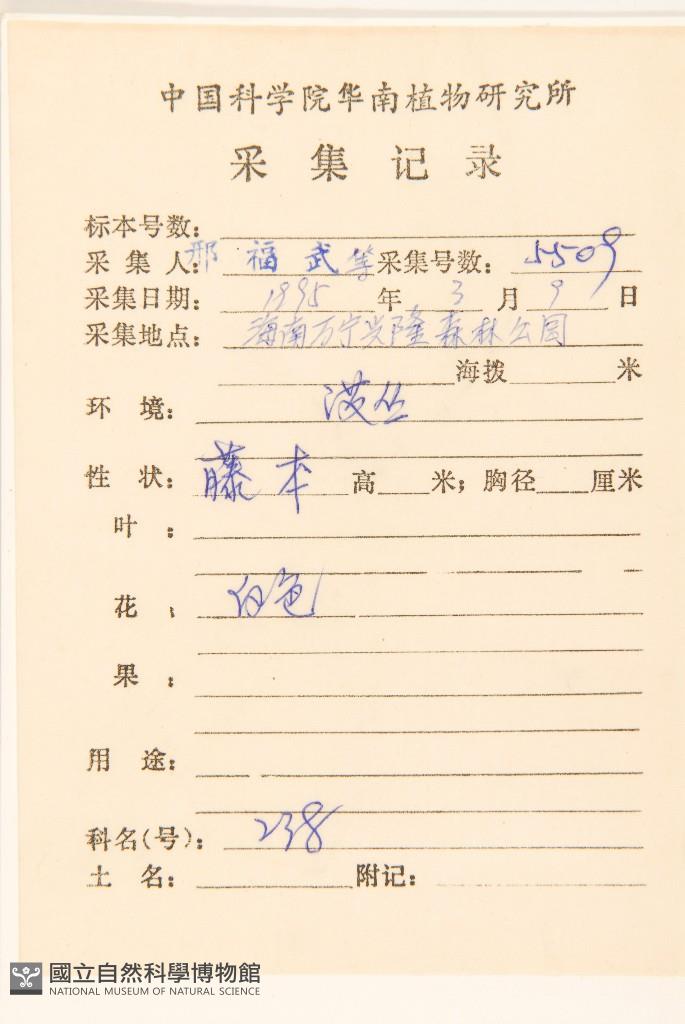 中国科学院华南植物研究所
采集记录
标本号数：
采集人：邢福武等 采集号数：5509
采集日期：1995年3月9日
采集地点：海南万宁兴隆森林公园
海拨 米
环境： 丛
性状：藤本 高 米；胸径 厘米
叶：
花：白色
果：
用途：
科名（号）：238
土名： 附记：
國立自然科學博物館
NATIONAL MUSEUM OF NATURAL SCIENCE